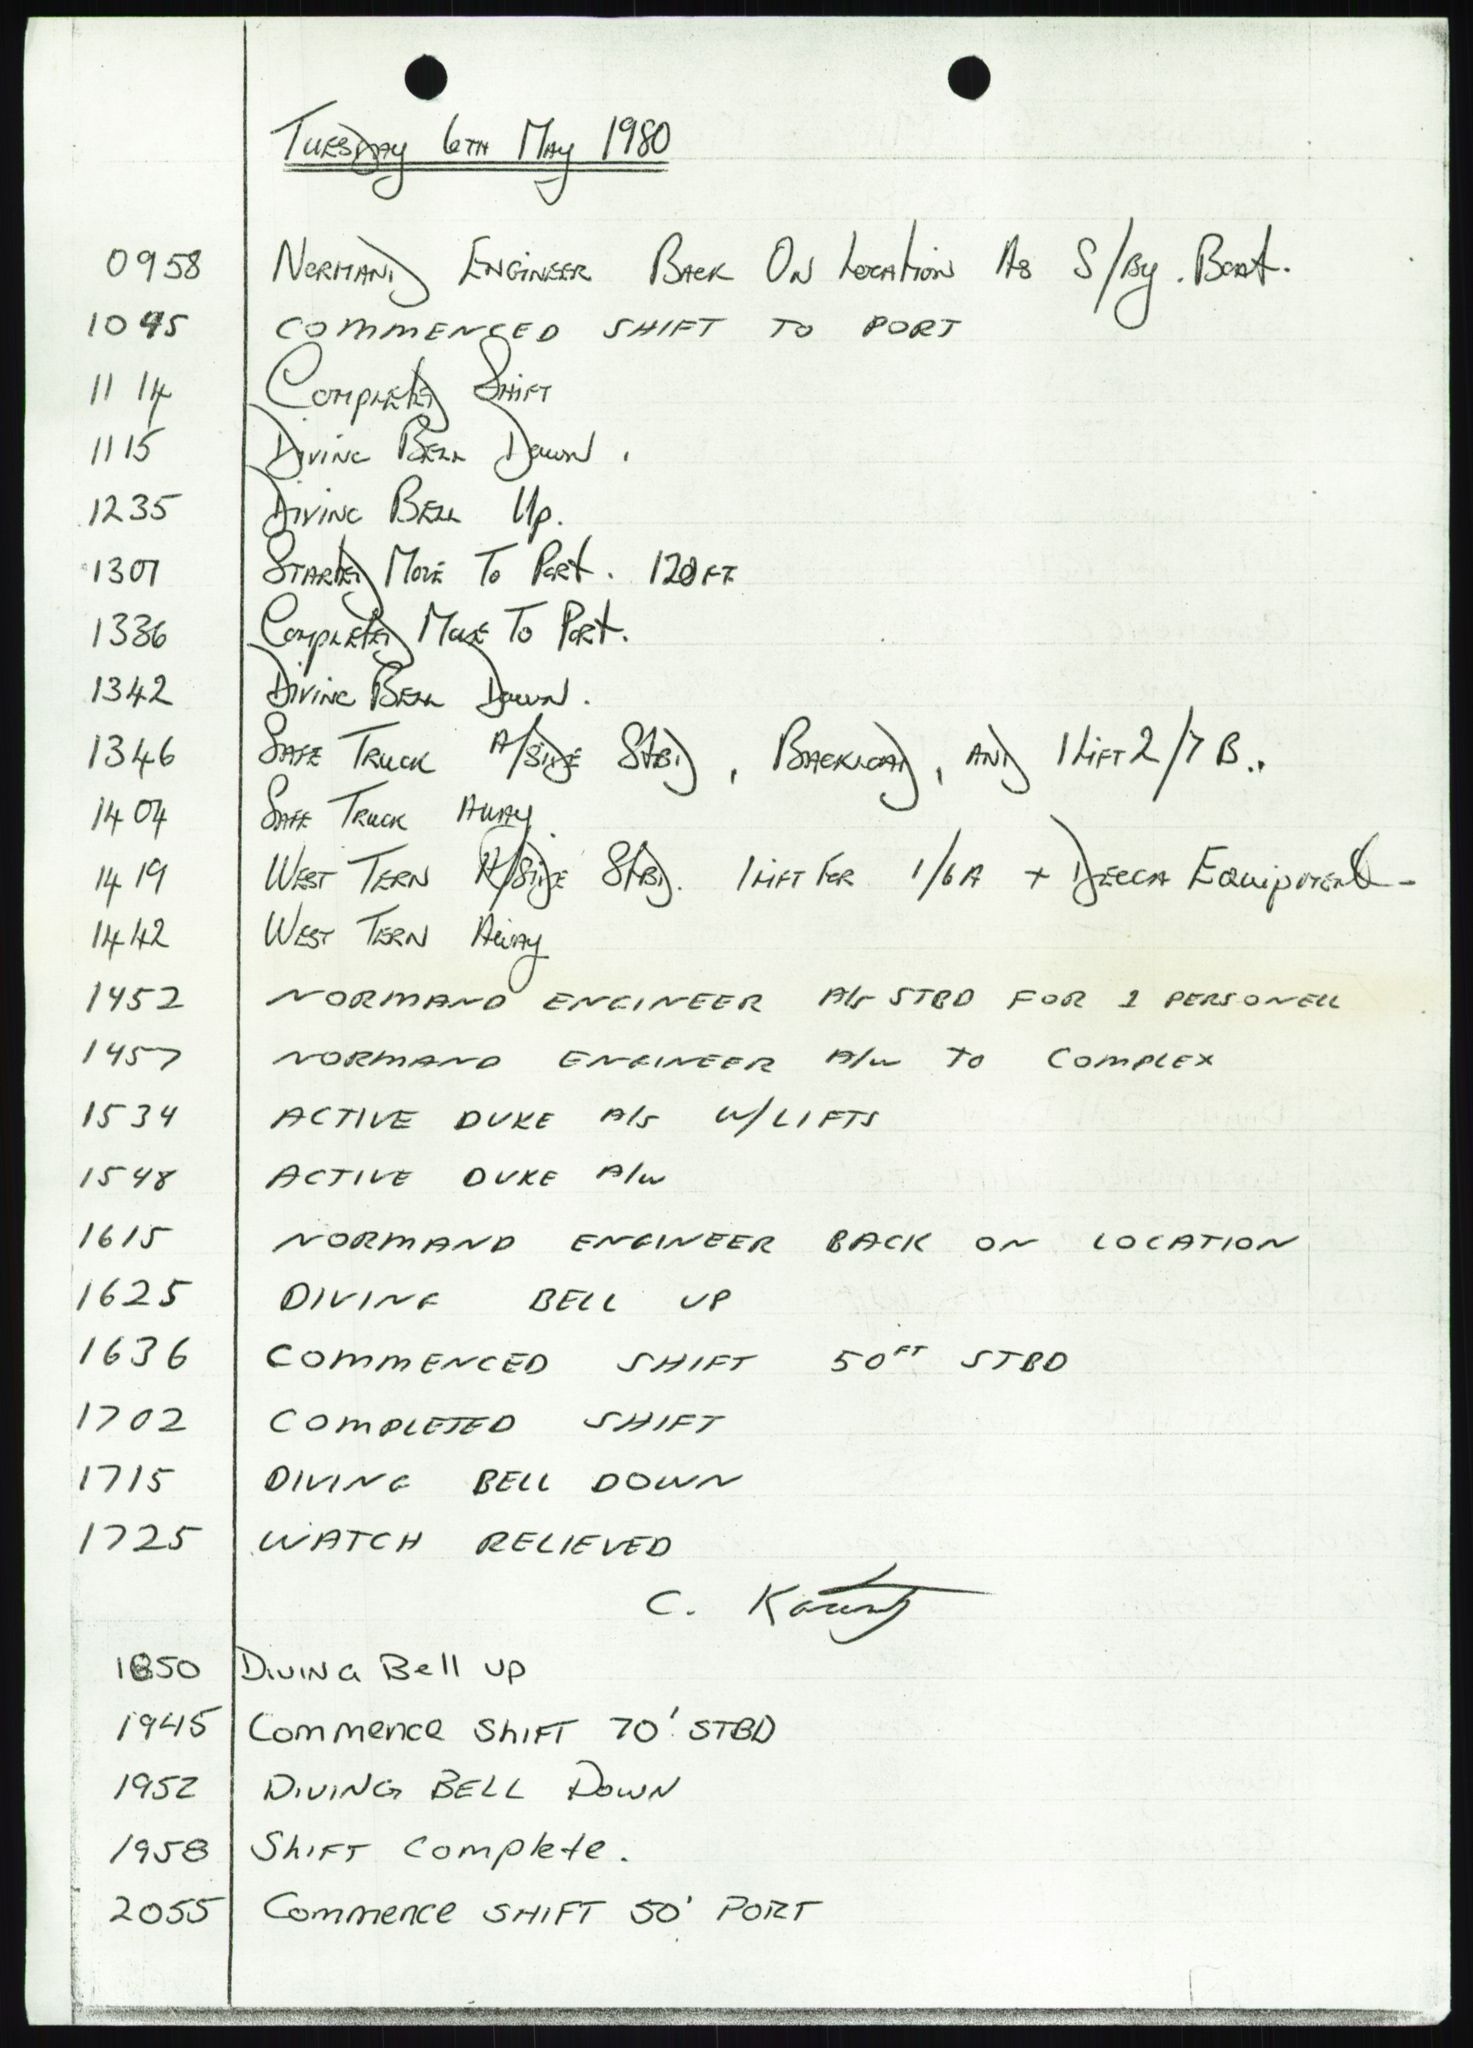 TUESDAY 6TH MAY 1980
0958 NORMAND ENGINEER BACK ON LOCATION AS S/BY. BOAT.
1045 COMMENCED SHIFT TO PORT
1114 COMPLETED SHIFT
1115 DIVING BELL DOWN.
1235 DIVING BELL UP.
1307 STARTED MOVE TO PORT. 120FT
1336 COMPLETED MOVE TO PORT.
1342 DIVING BELL DOWN.
1346 SAFE TRUCK A/SIDE STBD, BACKLOAD, AND 1 LIFT 2/7 B..
1404 SAFE TRUCK AWAY
1419 WEST TERN A/SIDE STBD. 1 LIFT FOR 1/6A + DECCA EQUIPMENT-
1442 WEST TERN AWAY
1452 NORMAND ENGINEER A/S STBD FOR 1 PERSONELL
1457 NORMAND ENGINEER A/W TO COMPLEX
1534 ACTIVE DUKE A/S W/LIFTS
1548 ACTIVE DUKE A/W
1615 NORMAND ENGINEER BACK ON LOCATION
1625 DIVING BELL UP
1636 COMMENCED SHIFT 50FT STBD
1702 COMPLETED SHIFT
1715 DIVING BELL DOWN
1725 WATCH RELIEVED
C.
1850 DIVING Bell UP
1945 Commence SHIFT 70' STBD
1952 DIVING BELL DOWN
1958 SHIFT Complete.
2055 Commence SHIFT 50' PORT